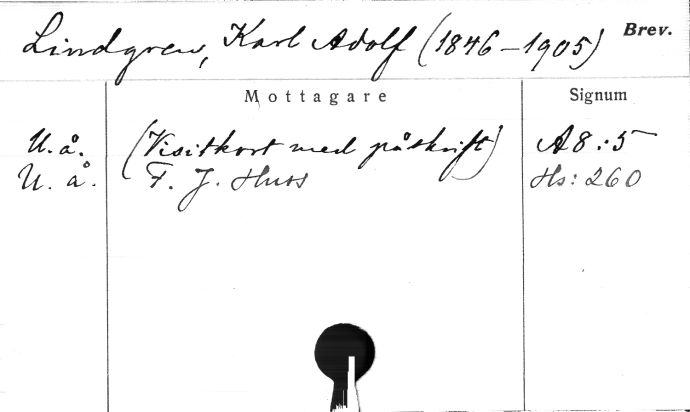 Lindgren, Karl Adolf (1846–1905) Brev.
Mottagare Signum
U.å. (Visitkort med påskrift) A8:5
U.å. F. J. Huss Hs: 260